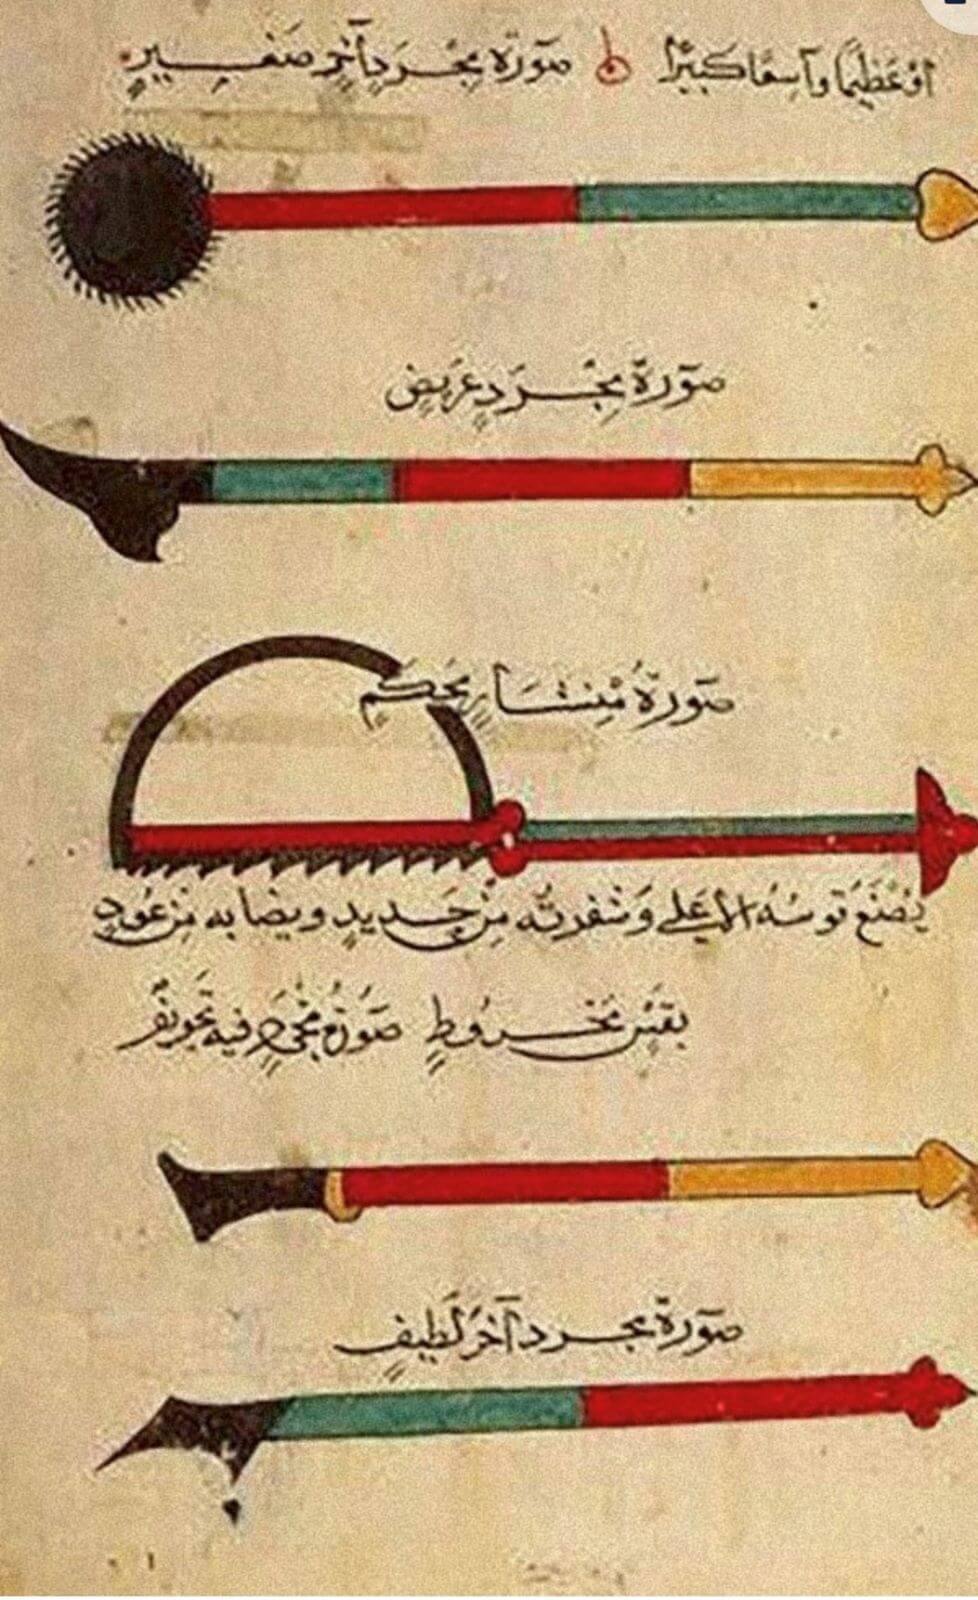 أو عظيما واسعا كبيرا صورة مجرد آخر صغير
صورة مجرد عريض
صورة منشار محكم
يصنع قوسه الاعلى وشفرته من حديد ونصابه من عود
بقس مخروط صورة مجرد فيه تجويف
صورة مجرد آخر لطيف